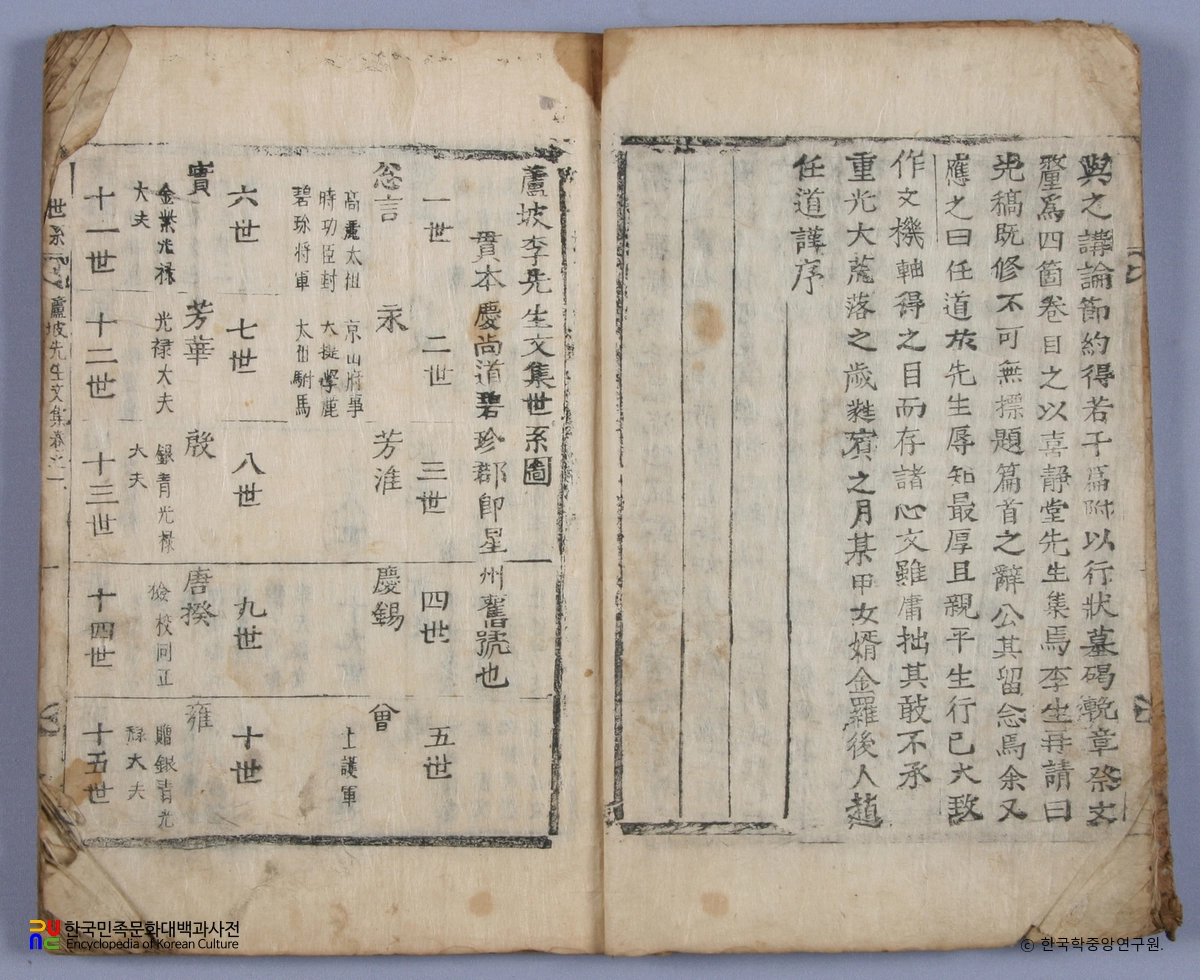 與之講論節約得若干篇附以行狀墓碣輓章祭文
釐爲四箇卷目之以喜靜堂先生集焉李生再請曰
先稿旣修不可無標題篇首之辭公其留念焉余又
應之曰任道於先生辱知最厚且親平生行已大致
作文機軸得之目而存諸心文雖庸拙其敢不承
重光大荒落之歲蕤賓之月某甲女婿金羅後人趙
任道謹序
蘆坡李先生文集世系圖
貫本慶尙道碧珍郡卽星州舊號也
一世 二世 三世 四世 五世
忩言 永 芳淮 慶錫 曾
高麗太祖 京山府事 上護軍
時功臣封
碧珍將軍 太祖駙馬
六世 七世 八世 九世 十世
實 芳華 殷 唐揆 雍
金紫光祿 光祿大夫 銀靑光祿 檢校同正 贈銀靑光
大夫 大夫 祿大夫
十一世 十二世 十三世 十四世 十五世
世系
蘆坡先生文集卷之一
한국민족문화대백과사전
Encyclopedia of Korean Culture
© 한국학중앙연구원.